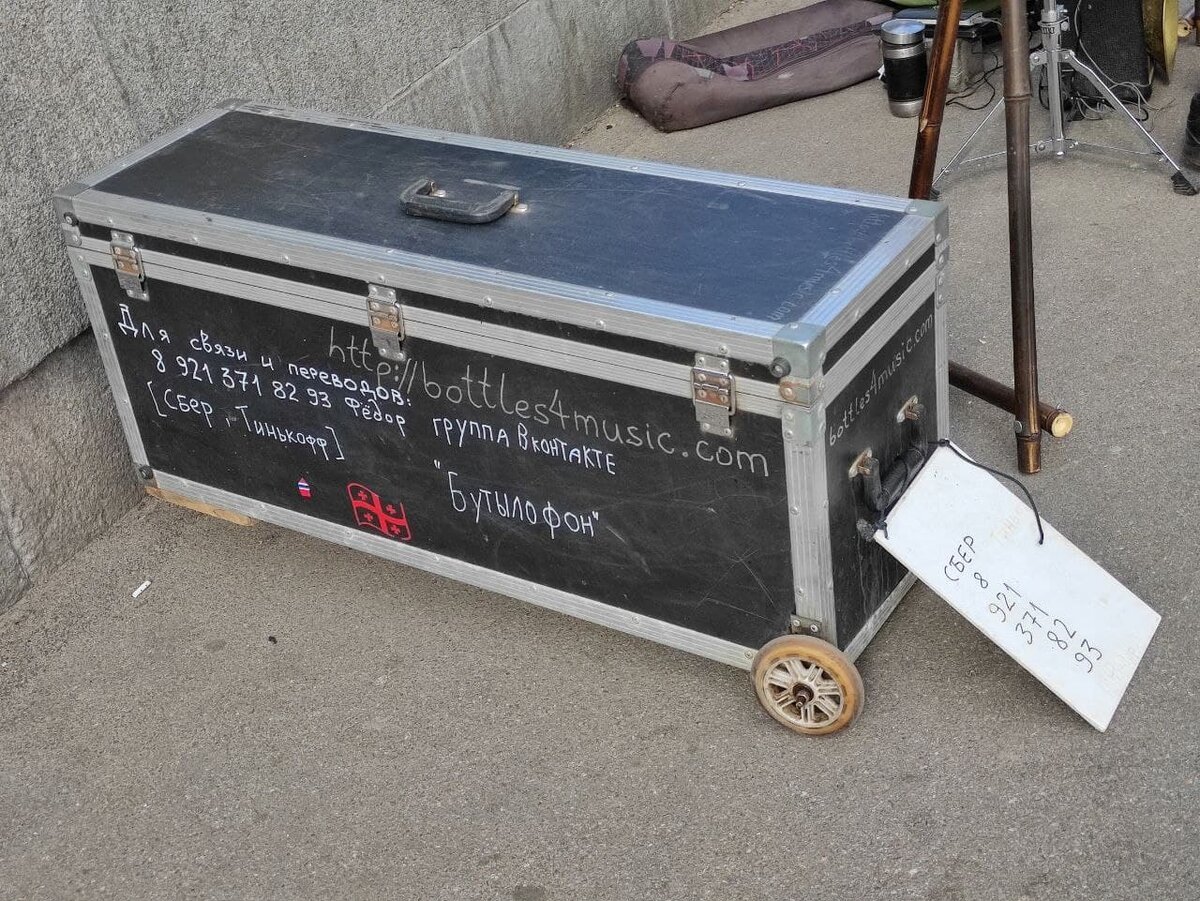 http://bottles4music.com
http://bottles4music.com
Для связи и переводов:
8 921 371 82 93 Фёдор
[Сбер, Тинькофф]
группа Вконтакте
"Бутылофон"
bottles4music.com
СБЕР
8
921
371
82
93